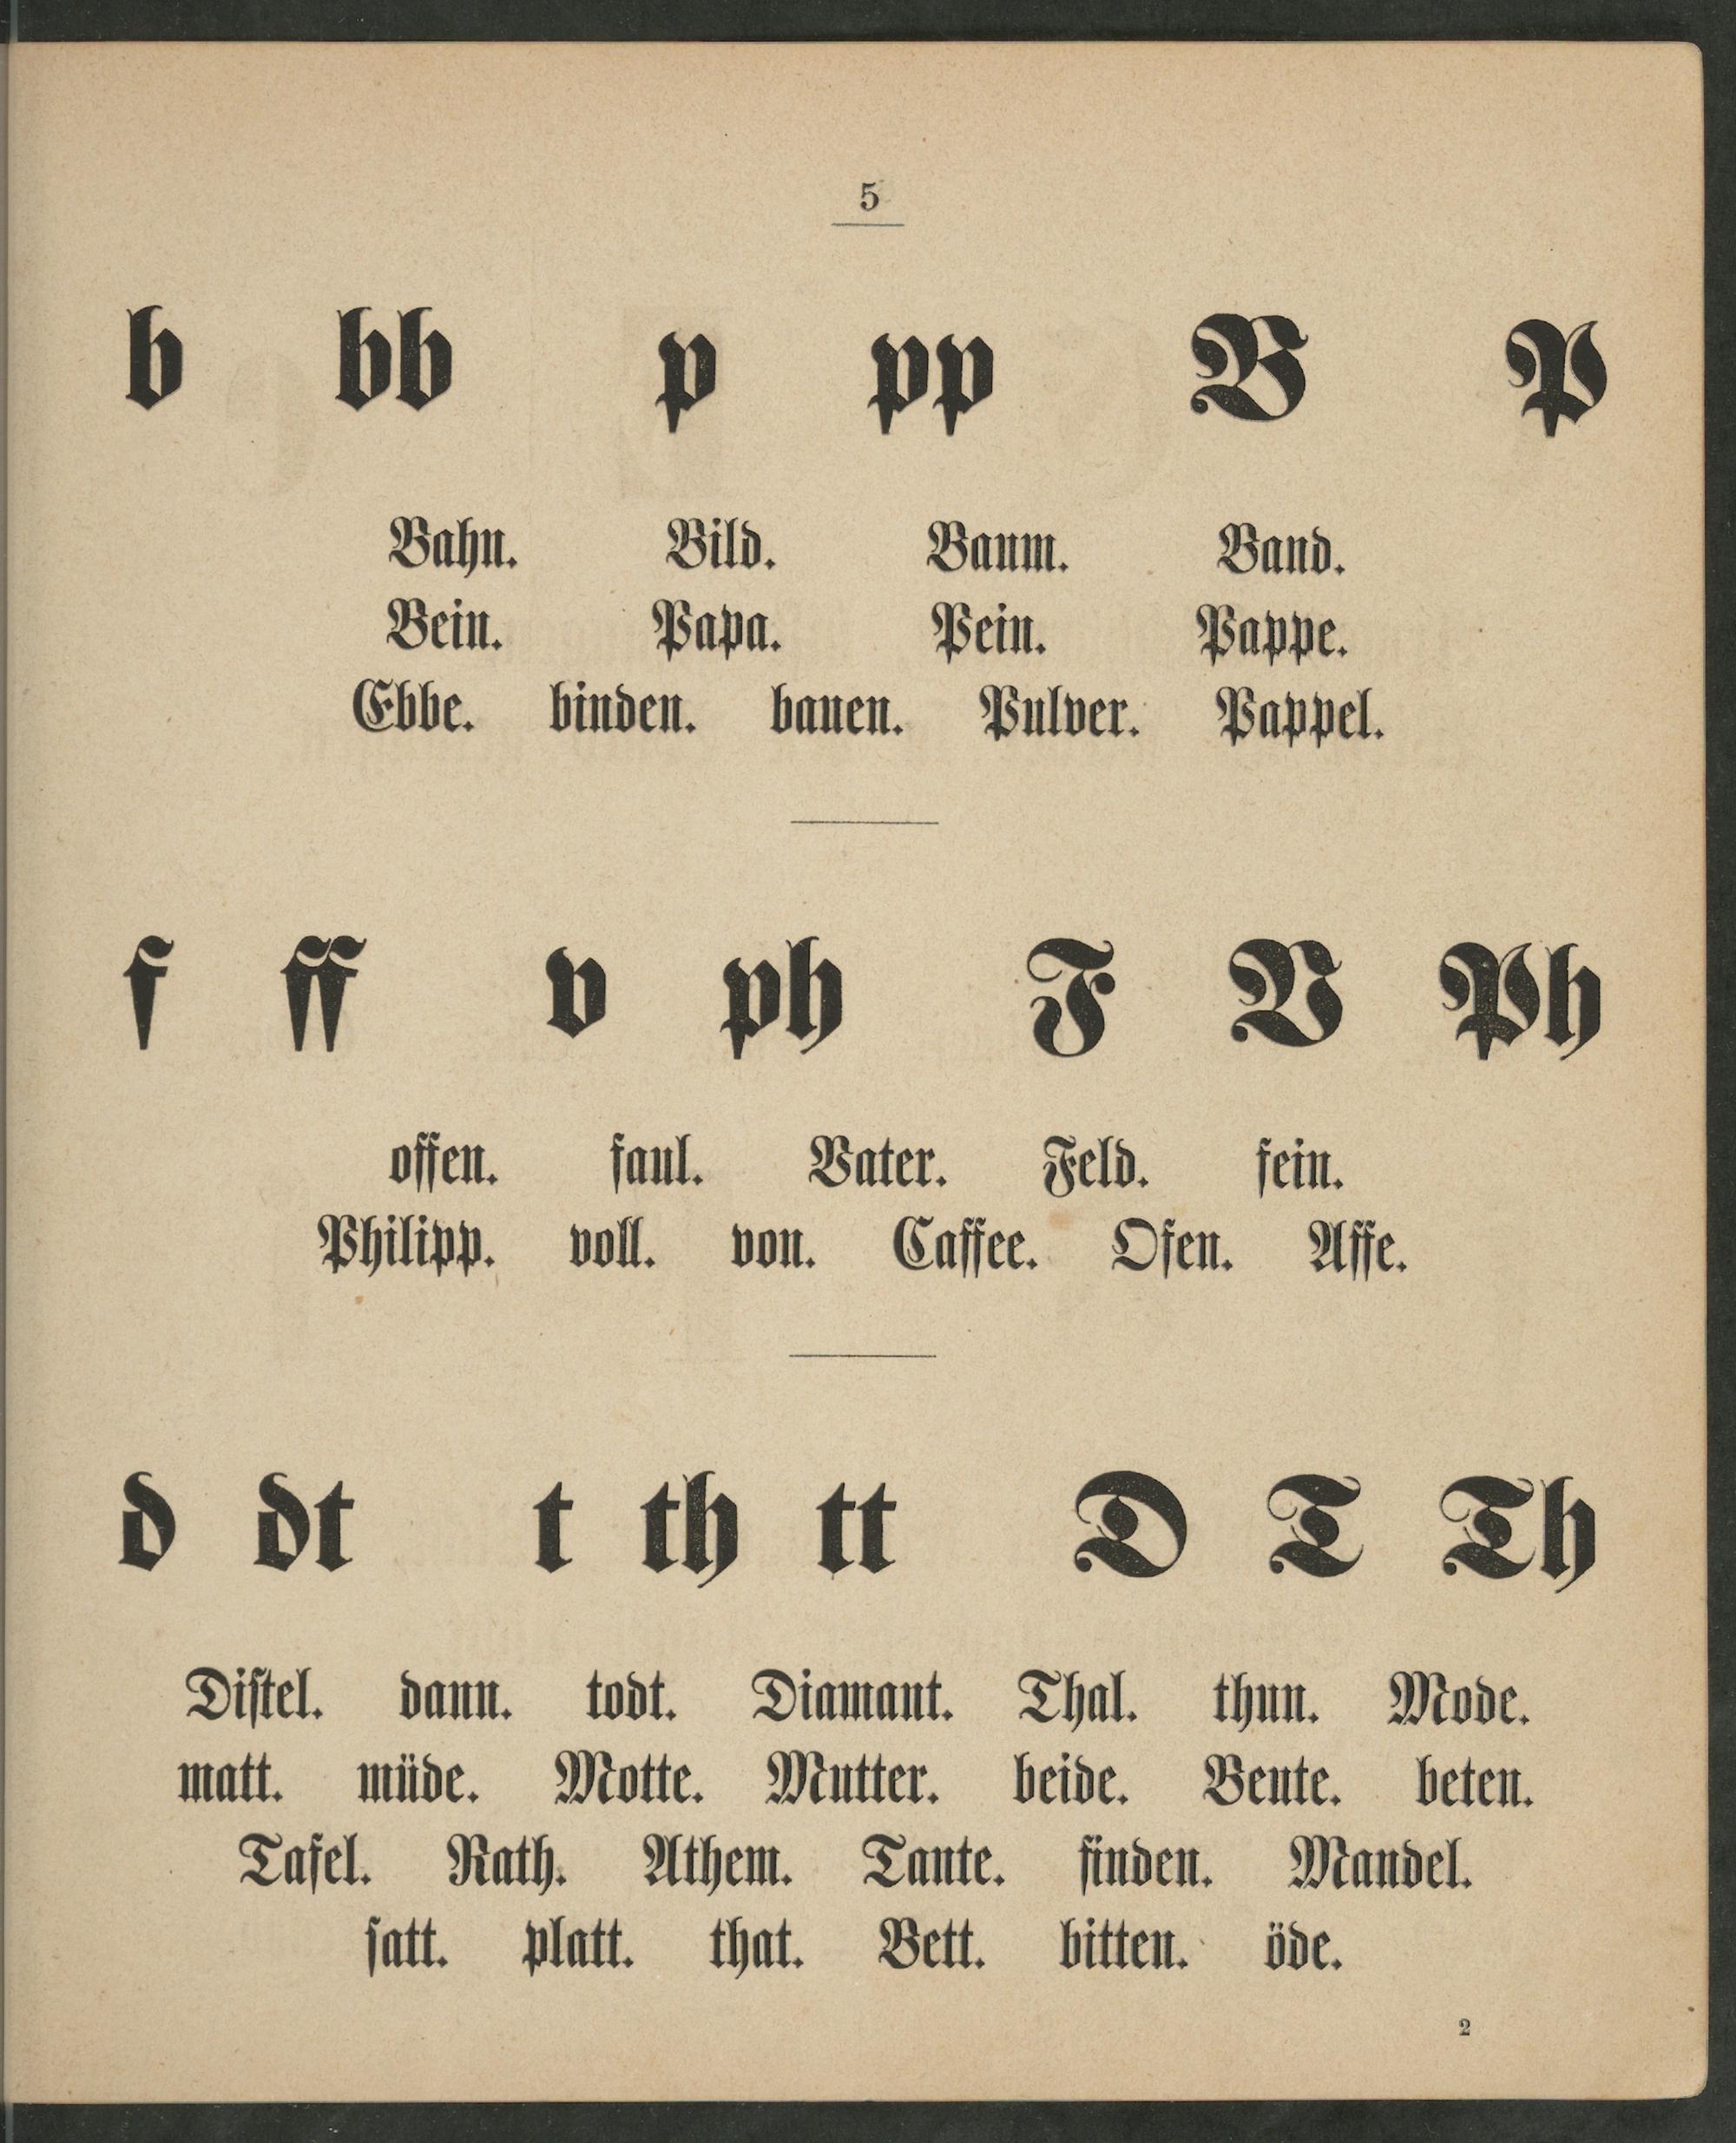 5
b bb p pp B P
Bahn. Bild. Baum. Band.
Bein. Papa. Pein. Pappe.
Ebbe. binden. bauen. Pulver. Pappel.
f ff v ph F V Ph
offen. faul. Vater. Feld. fein.
Philipp. voll. von. Caffee. Ofen. Affe.
d dt t th tt D T Th
Diſtel. dann. todt. Diamant. Thal. thun. Mode.
matt. müde. Motte. Mutter. beide. Beute. beten.
Tafel. Rath. Athem. Tante. finden. Mandel.
ſatt. platt. that. Bett. bitten. öde.
2